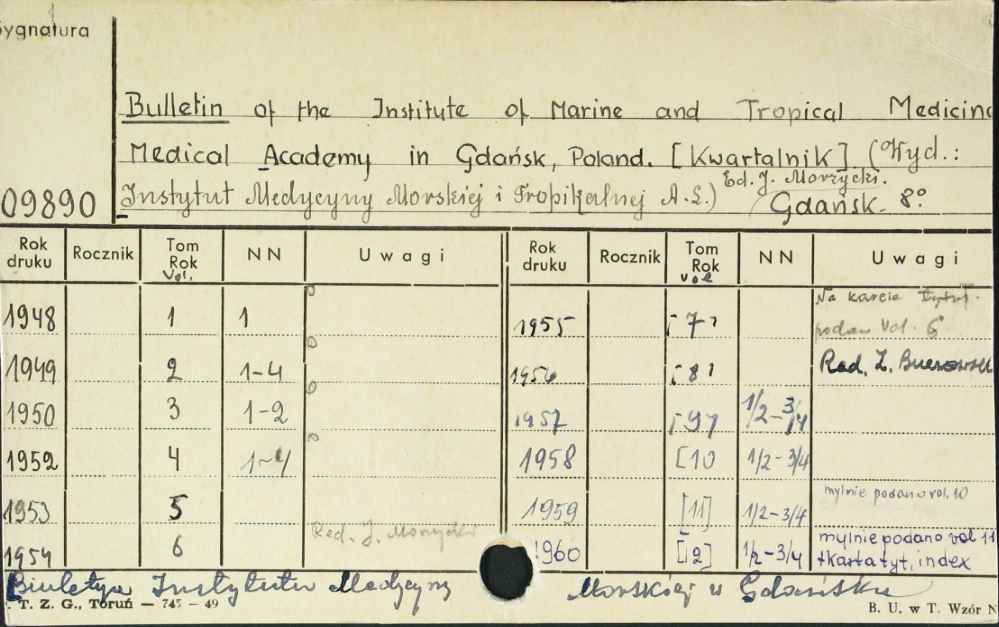 Sygnatura
Bulletin of the Institute of Marine and Tropical Medicine
Medical Academy in Gdańsk, Poland. [Kwartalnik]. (Wyd.:
09890 Instytut Medycyny Morskiej i Tropikalnej A.L.) Ed. J. Morzycki. Gdańsk. 8°
Rok druku Rocznik Tom Rok Vol. NN Uwagi Rok druku Rocznik Tom Rok vol NN Uwagi
1948 1 1 1955 [7] Na karcie tytuł. podan vol. 6
1949 2 1-4 1956 [8] Red. L.
1950 3 1-2 1957 [9] 1/2-3/4
1952 4 1-4 1958 [10 1/2-3/4
1953 5 1959 [11] 1/2-3/4 mylnie podano vol. 10
1954 6 Red. J. Morzycki 1960 [12] 1/2-3/4 mylnie podano vol 11 + karta tyt, index
Biuletyn Instytutu Medycyny Morskiej w Gdańsku
. T. Z. G., Toruń — 745 — 49 B. U. w T. Wzór N